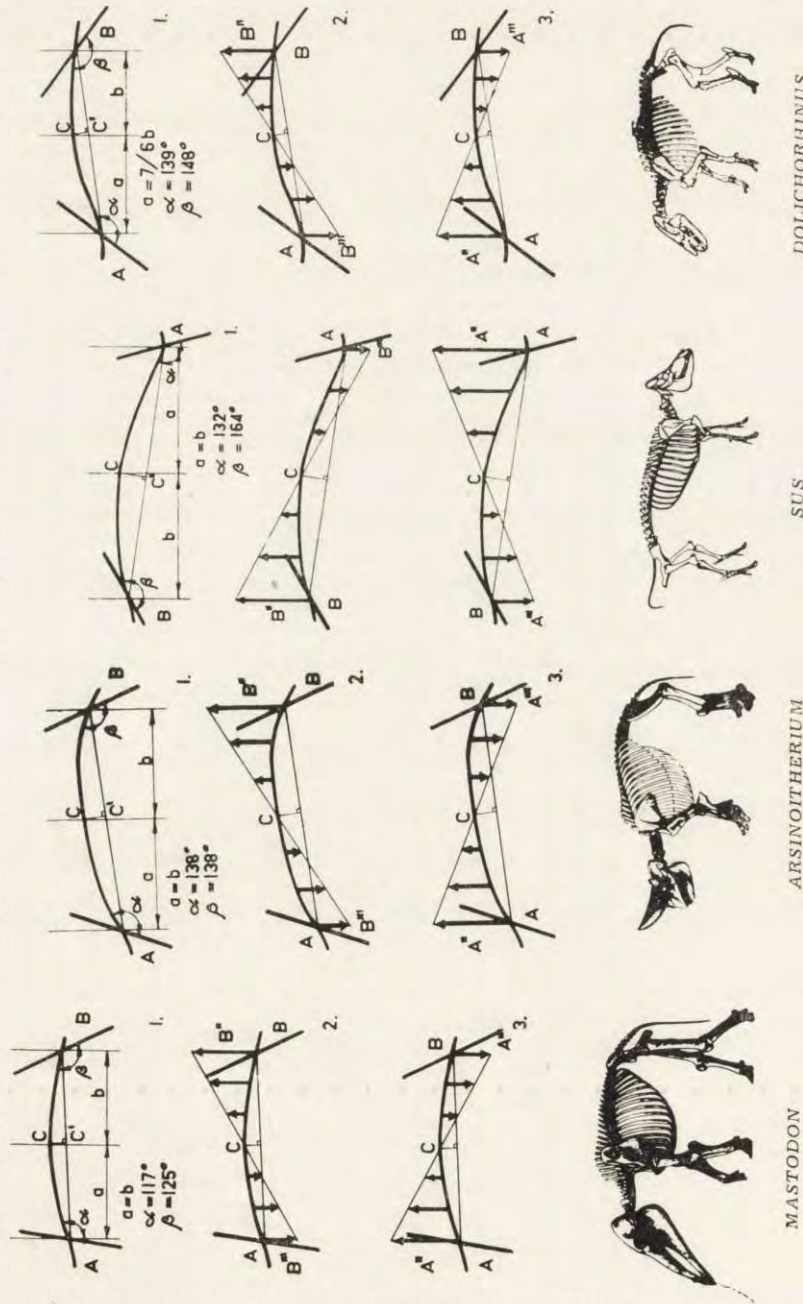 A α C C' a b β B 1.
a = b
α = 117°
β = 125°
A B''' C B" B 2.
A" A C B A''' 3.
MASTODON
A α C C' a b β B 1.
a = b
α = 138°
β = 138°
A B''' C B" B 2.
A" A C B A''' 3.
ARSINOITHERIUM
B β C C" b a α A 1.
a = b
α = 132°
β = 164°
B" B C A B'''
B A''' C A" A
SUS
A α C C' a b β B 1.
a = 7/6 b
α = 139°
β = 148°
A B''' C B" B 2.
A" A C B A''' 3.
DOLICHORHINUS